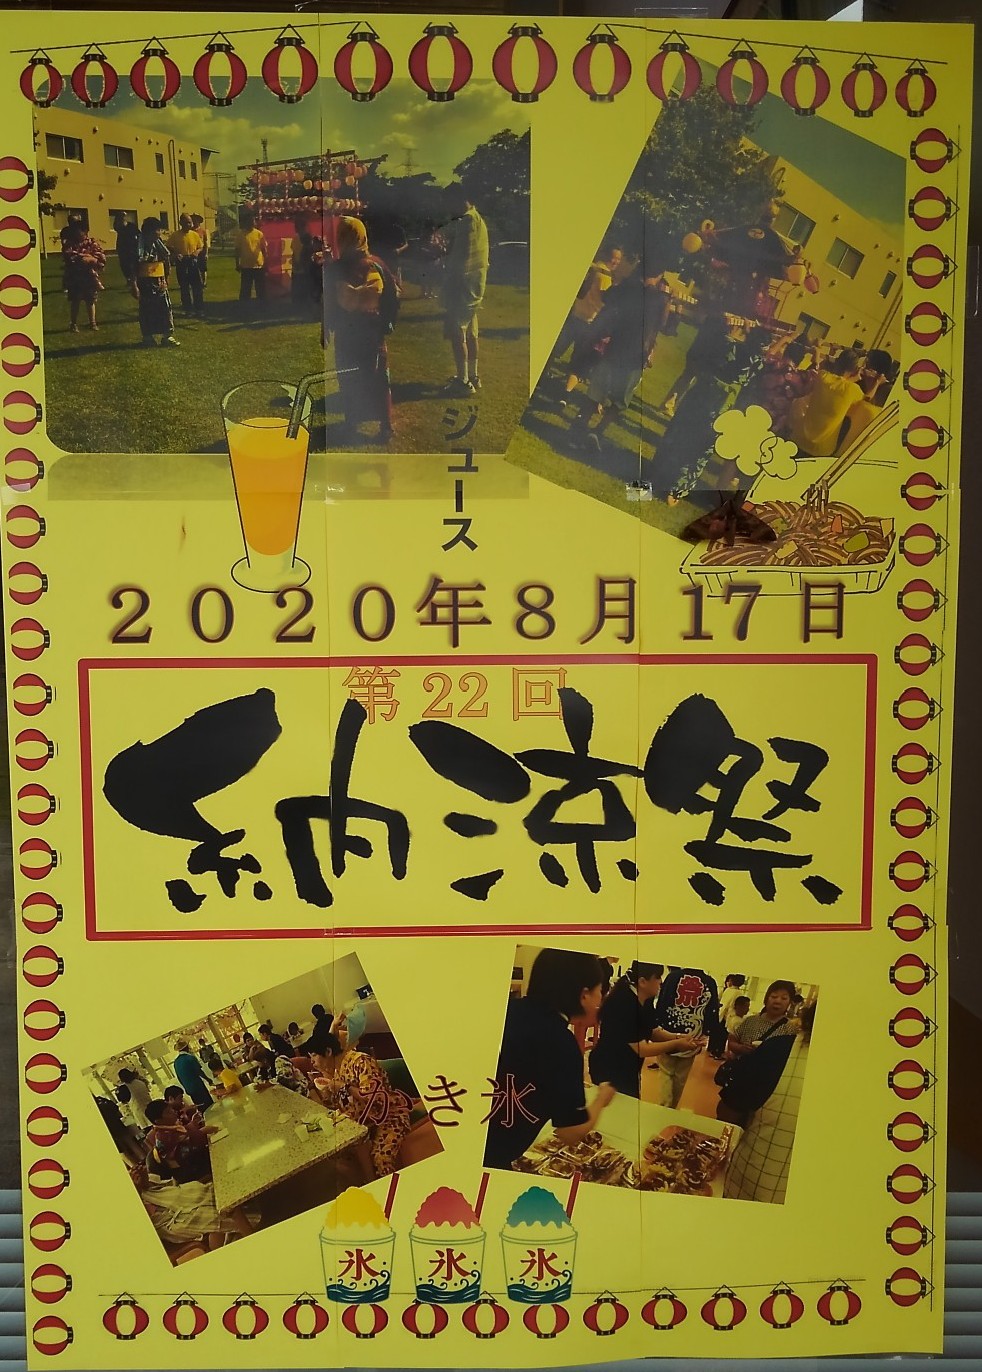 ジュース
2020年8月17日
第22回
納涼祭
祭
かき氷
氷 氷 氷